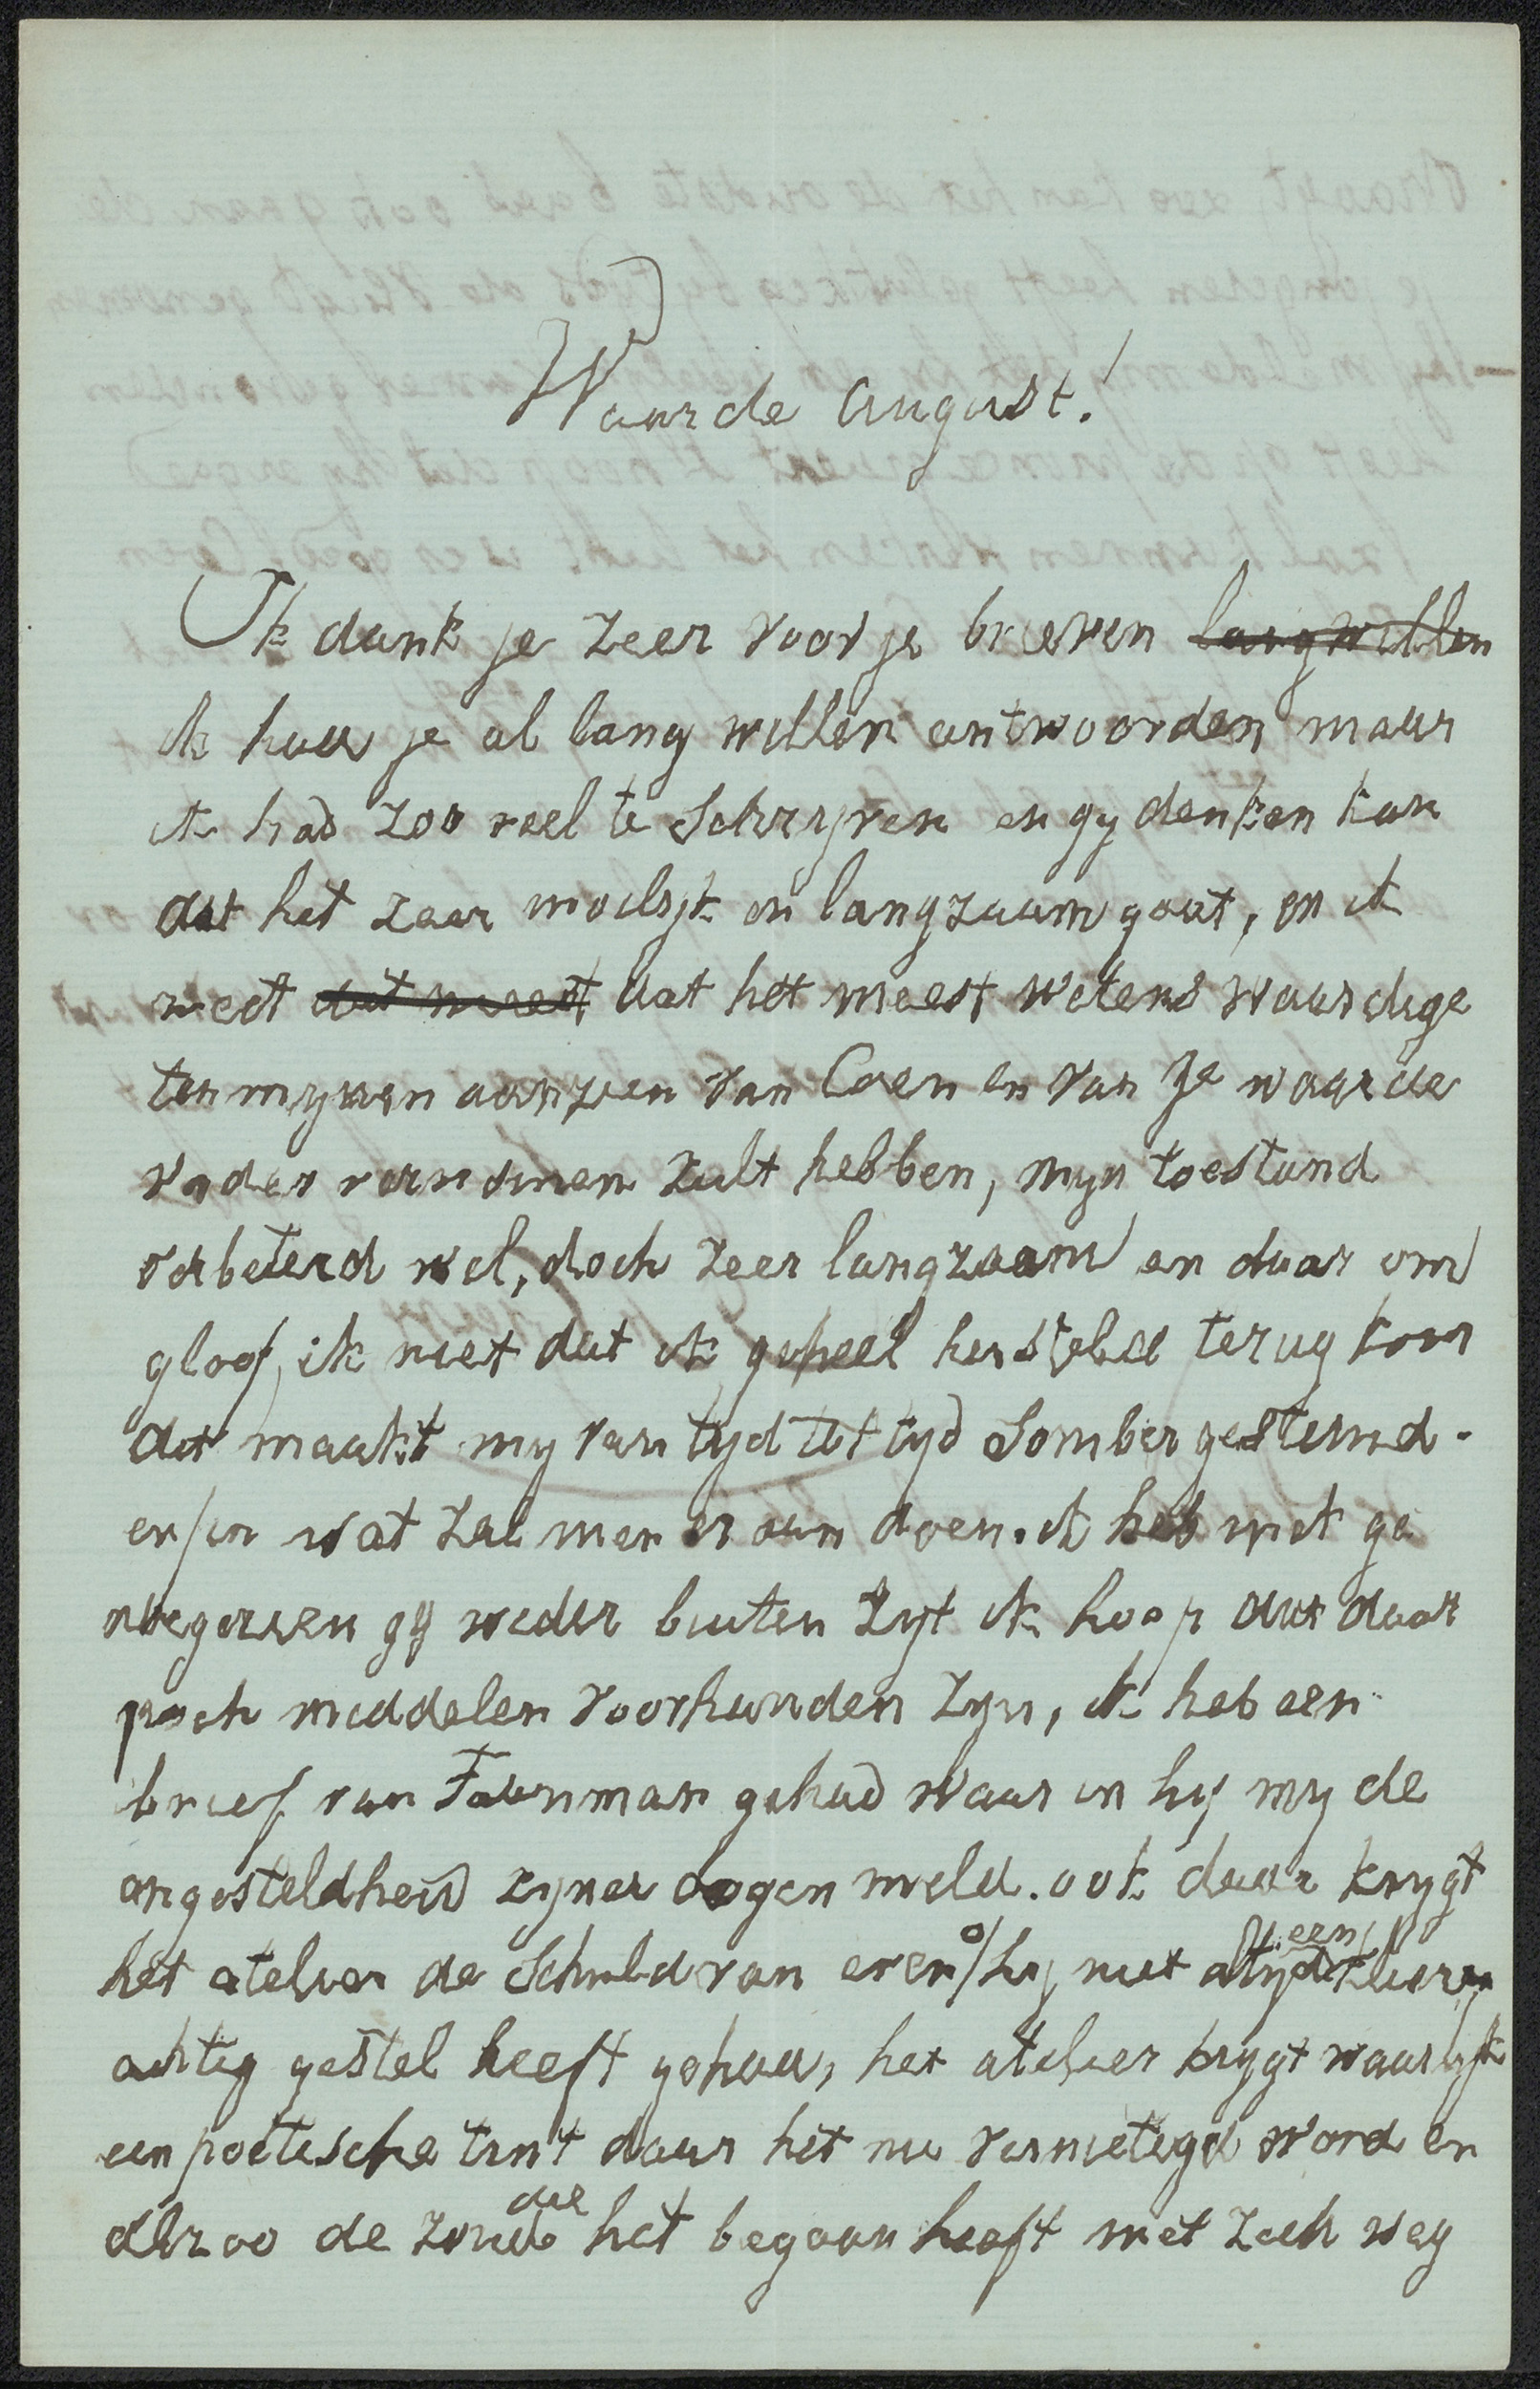 Waarde August!
Ik dank je zeer voor je brieven lang willen
ik had je al lang willen antwoorden maar
ik had zoo veel te Schrijven en gy denken kan
dat het zeer moeilijk en langzaam gaat, en ik
weet dat meest dat het meest wetens waardige
ten mynen aanzien van Coen en van Je waarde
vader vernomen zult hebben, myn toestand
verbeterd wel, doch zeer langzaam en daar om
gloof ik niet dat ik geheel hersteld terug kom
dat maakt my van tyd tot tyd Somber gestemd.
enfin wat zal men er aan doen. ik heb met ge
noegen gy weder buiten zyt ik hoop dat daar
noch middelen voorhanden zyn, ik heb een
brief van gehad waar in hy my de
ongesteldheid zyner oogen meld. ook daar krygt
het atelier de Schuld van even of hy niet altyd een
achtig gestel heeft gehad, het atelier krygt waarlyk
een poëtische tint daar het nu vernietigd word en
alzoo de zonde die het begaan heeft met zich weg